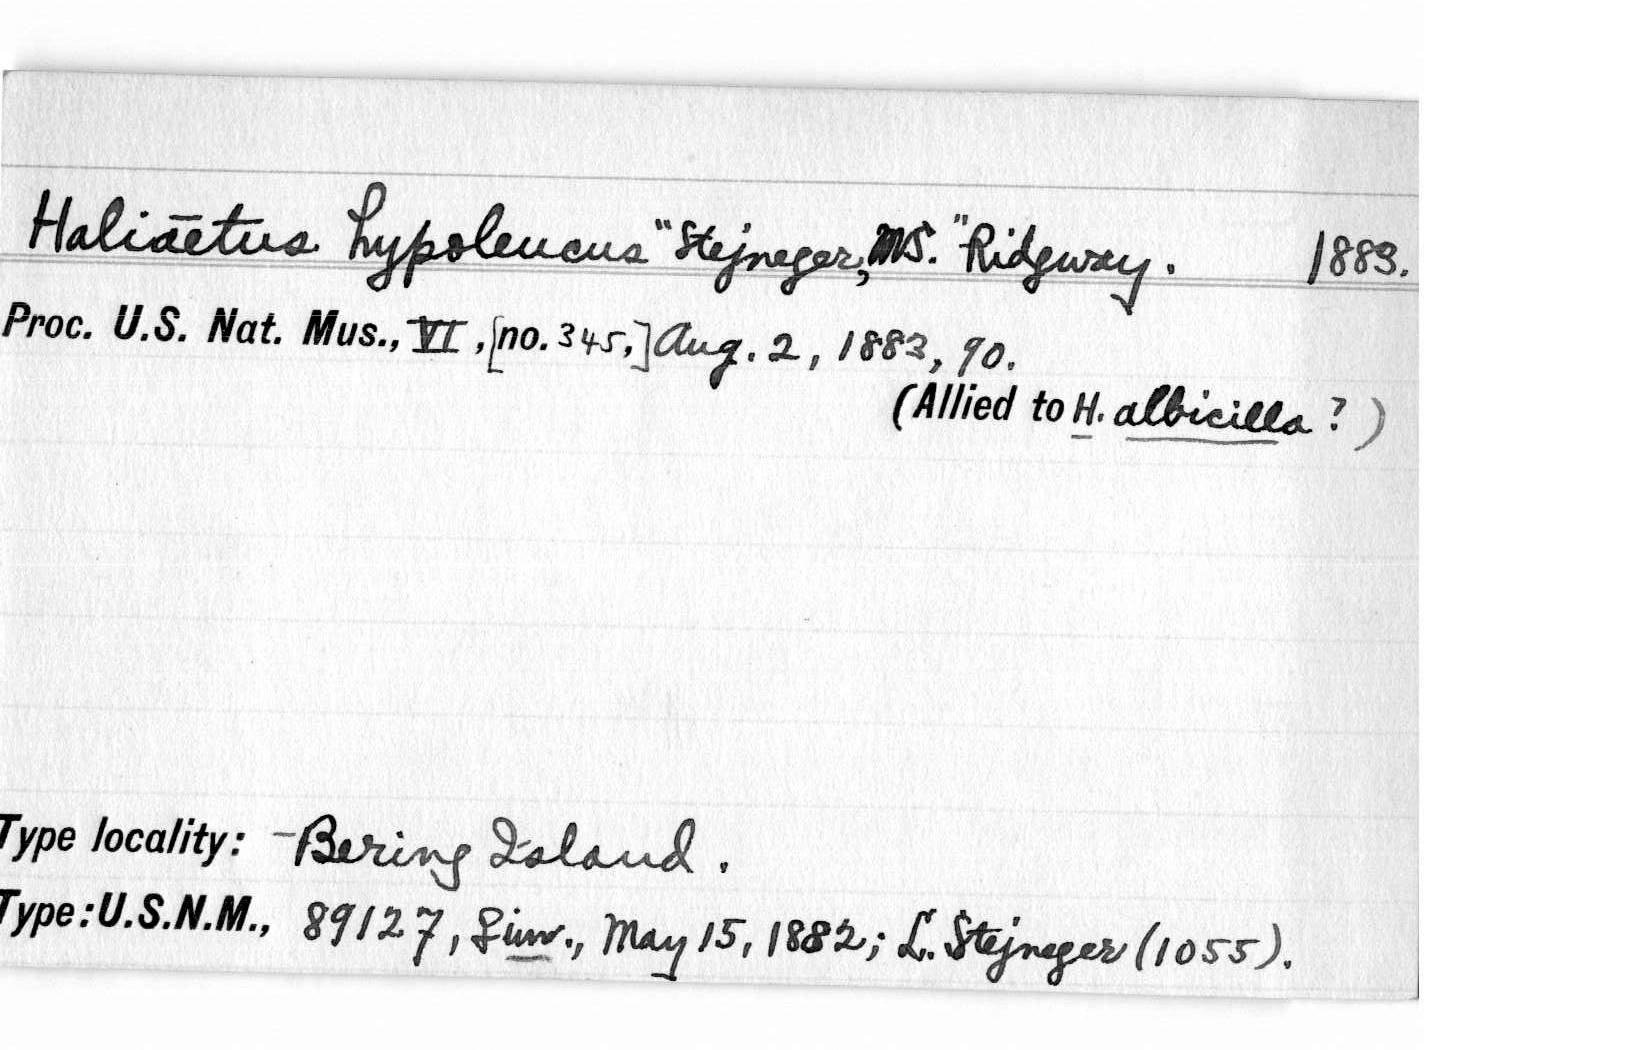 Haliāetus hypoleucus "Stejneger, MS." Ridgway. 1883.
Proc. U.S. Nat. Mus., VI, [no. 345,] Aug. 2, 1883, 90.
(Allied to H. albicilla?)
Type locality: Bering Island.
Type: U.S.N.M., 89127, Juv., May 15, 1882; L. Stejneger (1055).